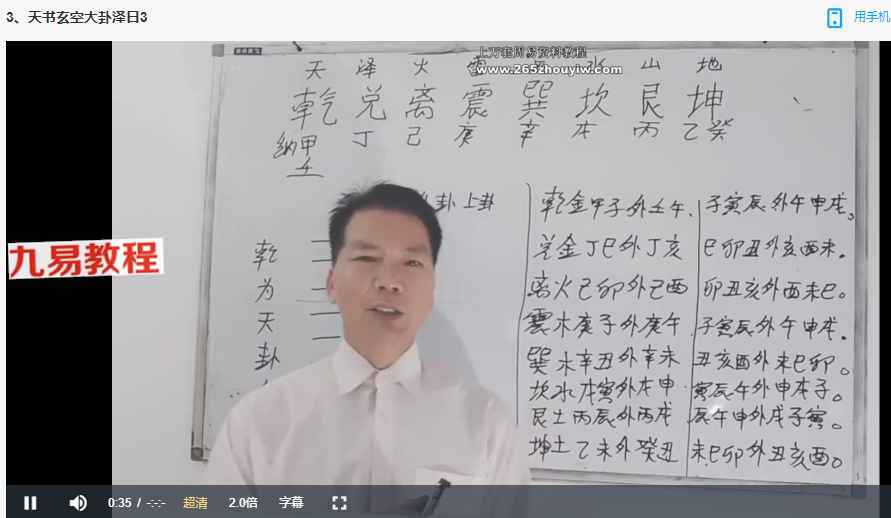 3、天书玄空大卦泽日3
用手机
上万套周易资料教程
www.265zhouyiw.com
天 泽 火 雷 水 山 地
乾 兑 离 震 巽 坎 艮 坤
纳甲 丁 己 庚 辛 戊 丙 乙癸
壬
卦上卦
乾
为
天
卦
乾金甲子外壬午、子寅辰外午申戌。
兑金丁巳外丁亥 巳卯丑外亥酉未。
离火己卯外己酉 卯丑亥外酉未巳。
震木庚子外庚午 子寅辰外午申戌.
巽木辛丑外辛未 丑亥酉外未巳卯。
坎水戊寅外戊申 寅辰午外申戌子。
艮土丙辰外丙戌 辰午申外戌子寅。
坤土乙未外癸丑 未巳卯外丑亥酉。
九易教程
0:35 / -:-:- 超清 2.0倍 字幕